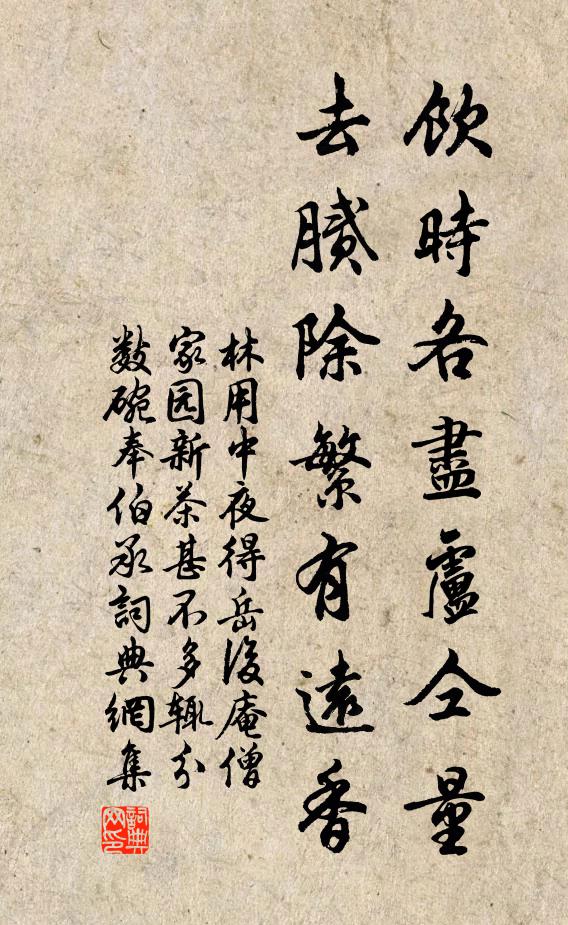 飲時各盡盧仝量
去膩除繁有遠香
林用中夜得岳後庵僧
家园新茶甚不多辄分
数碗奉伯承詞典網集
詞典网印